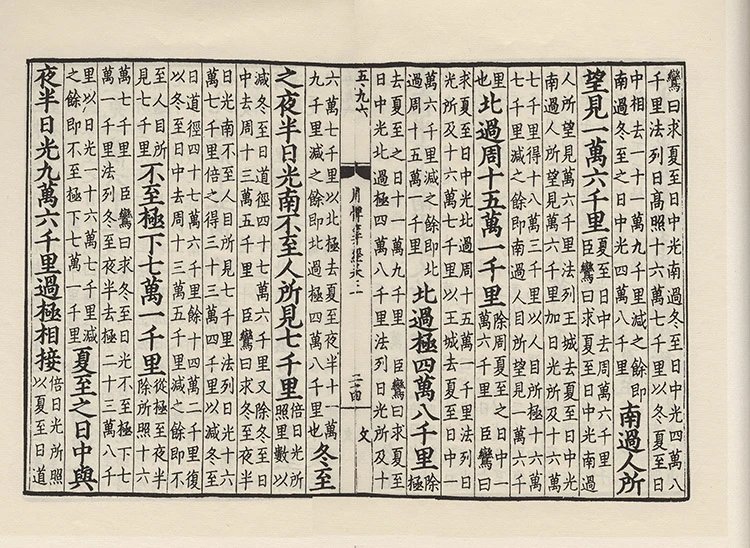 鸞曰求夏至日中光南過冬至日中光四萬八
千里法列日高照十六萬七千里以冬至夏至日
中相去一十一萬九千里減之餘即
南過冬至之日中光四萬八千里
南過人所
望見一萬六千里
夏至之日中去周萬六千里
臣鸞曰求夏至日中光南過
人所望見萬六千里法列王城去夏至日中光
南過人所望見萬六千里加日光所及十六萬
七千里得十八萬三千里以人目所極十六萬
七千里減之餘即南過人所望見萬六千里
也
北過周十五萬一千里
除周夏至之日中一
萬六千里 臣鸞曰
求夏至日中光北過周十五萬一千里法列日
光所及十六萬七千里以王城去夏至日中一
萬六千里減之餘即北
過周十五萬一千里
北過極四萬八千里
除
去夏至之日十一萬九千里 臣鸞曰求夏至
日中光北過極四萬八千里法列日光所及十
五九六
二十四
文
六萬七千里以北極去夏至夜半十一萬
九千里減之餘即北過極四萬八千里也
冬至
之夜半日光南不至人所見七千里
倍日光所
照里數以
減冬至日道徑四十七萬六千里又除冬至日
中去周十三萬五千里 臣鸞曰求冬至夜半
日光南不至人目所見七千里法列日光十六
萬七千里倍之得三十三萬四千里以減冬至
日道徑四十七萬六千里餘十四萬二千里復
以冬至日中去周十三萬五千里減之餘即不
至人目所
見七千里
不至極下七萬一千里
從極至夜半
除所照十六
萬七千里 臣鸞曰求冬至日光不至極下七
萬一千里法列冬至夜半去極二十三萬八千
里以日光一十六萬七千里減
之餘即不至極下七萬一千里
夏至之日中與
夜半日光九萬六千里過極相接
倍日光所照
以夏至日道